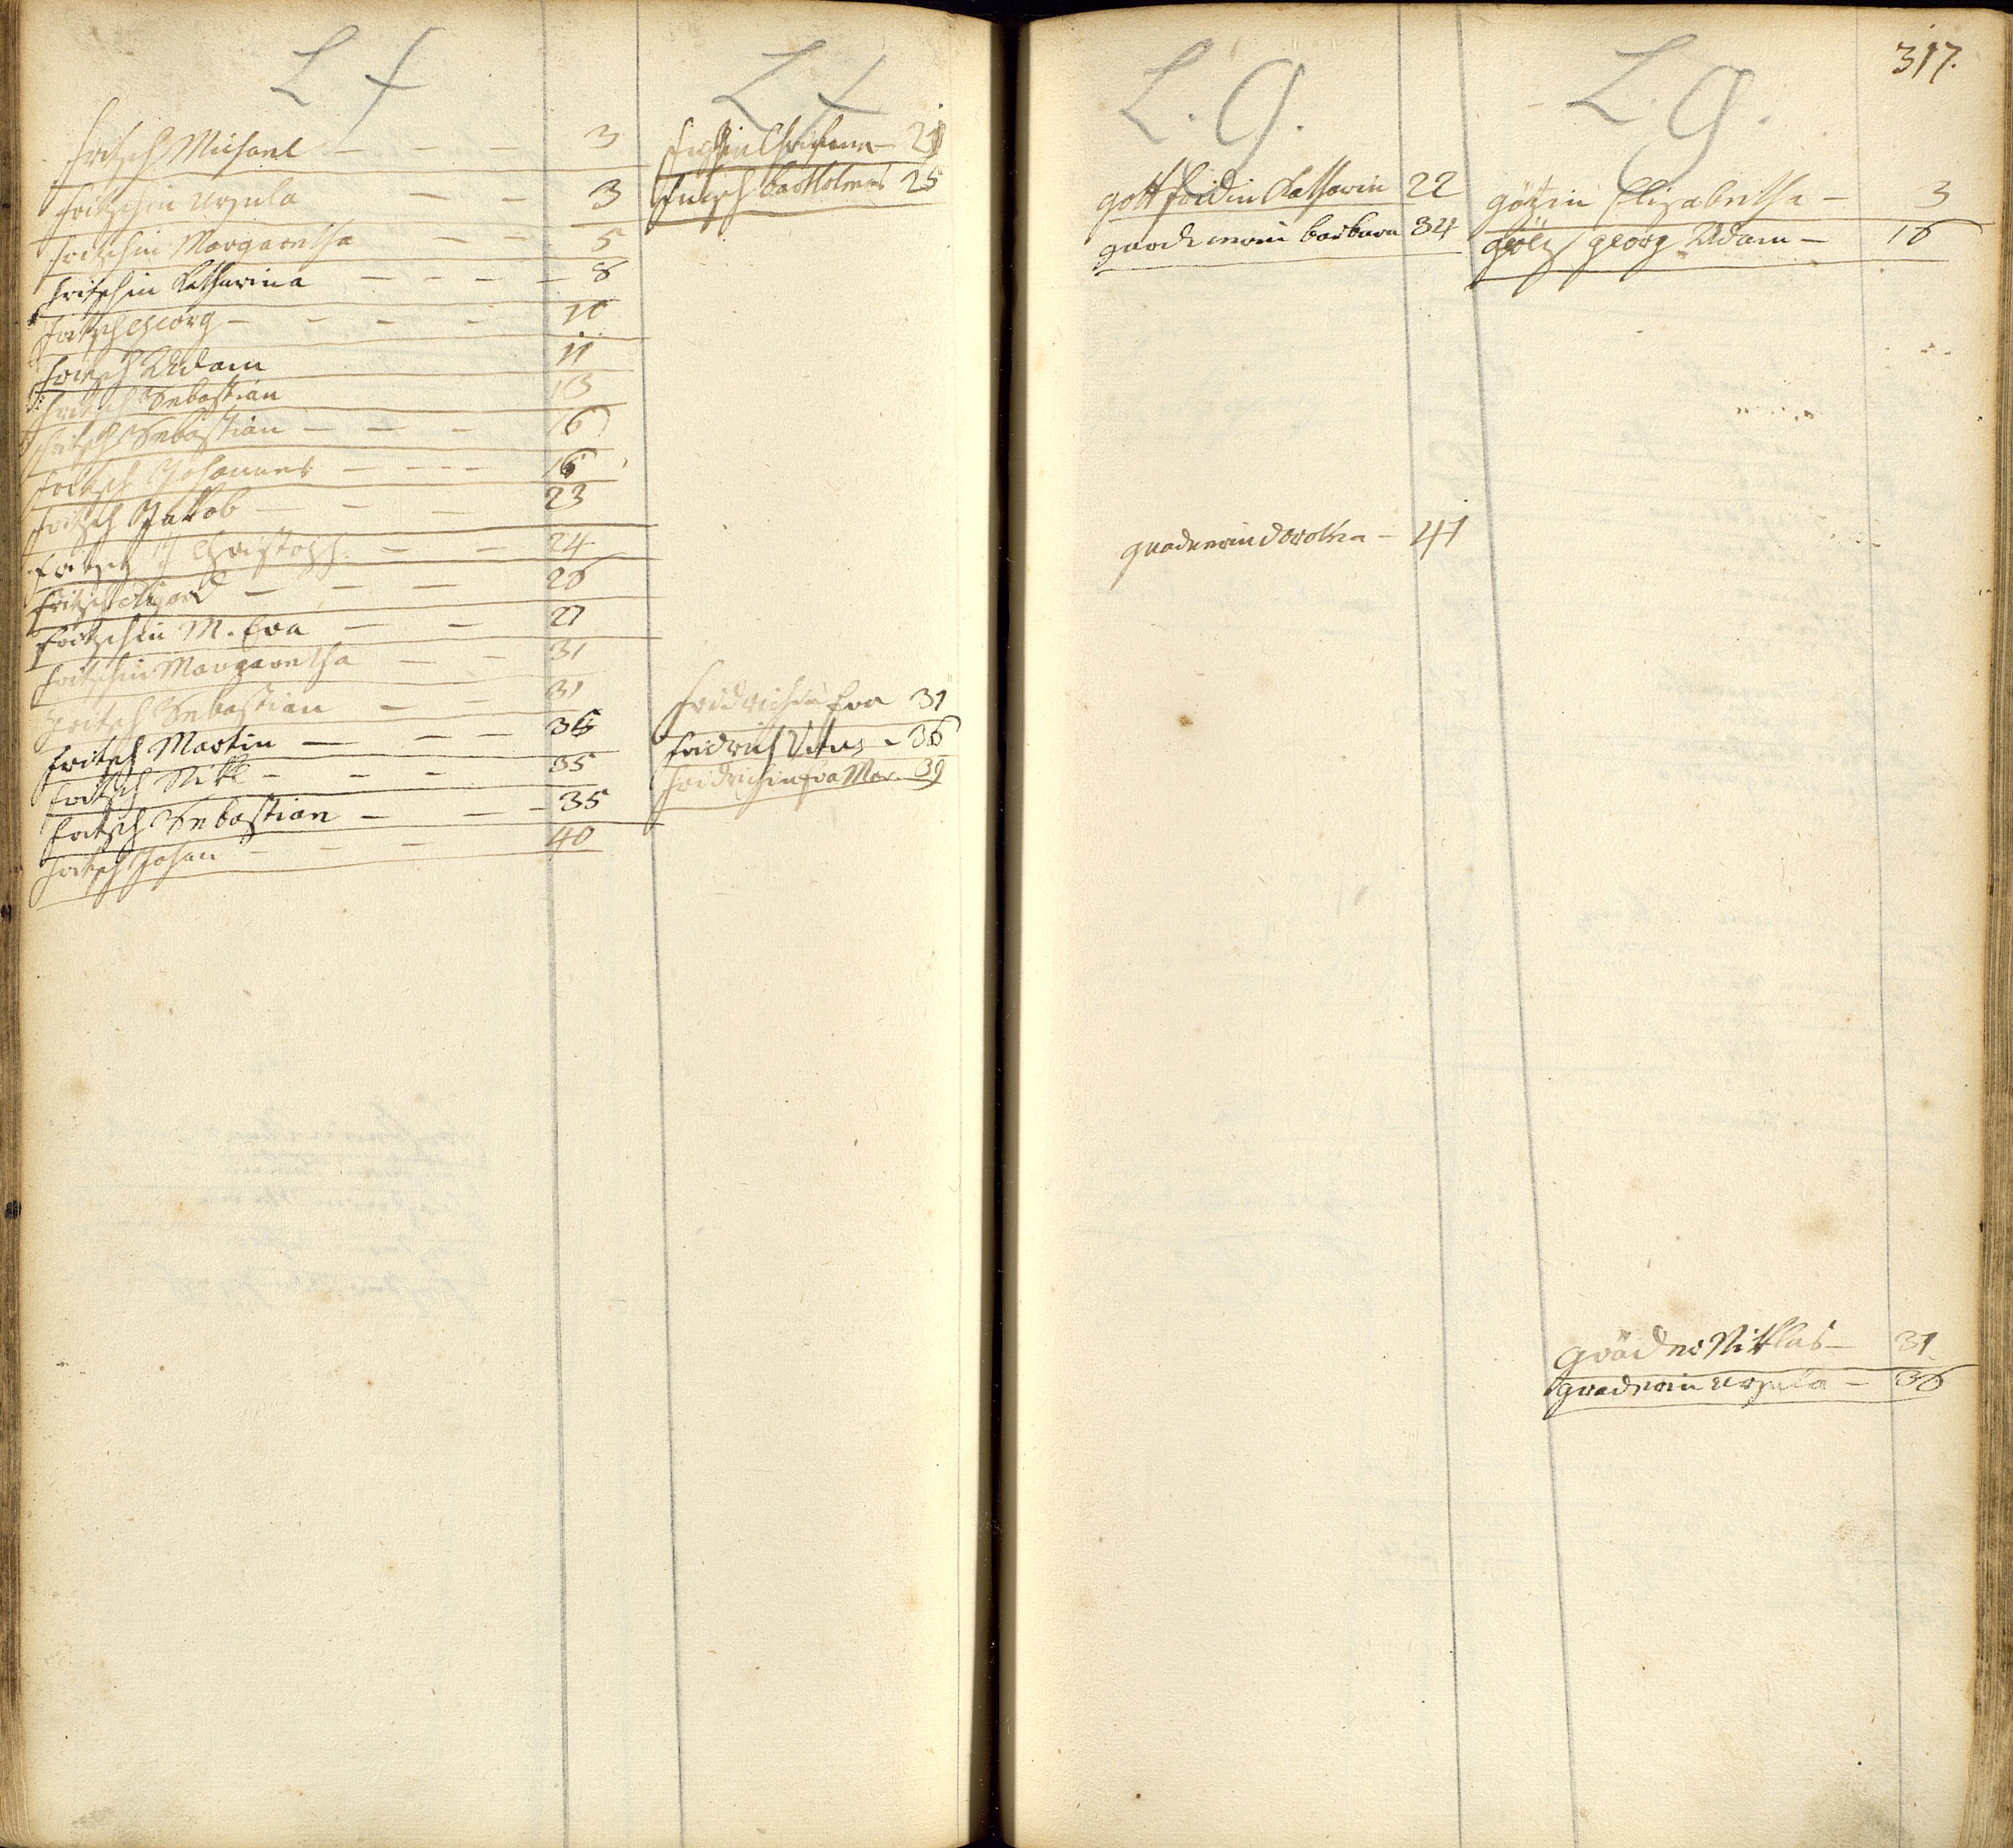 L f
fritsch Michael — — — 3
fritschin Ursula — — 3
fritschin Margaretha — — 5
fritschin Katharina — — — 8
fritsch Georg — — — — 10
fritsch Adam 11
fritsch Sebastian 13
fritsch Sebastian — — — 16
fritsch Johannes — — — 16
fritsch Jakob — — — 23
fritsch Christoph — — 24
fritsch — — — 26
fritschin M. Eva — — 27
fritschin Margaretha — — 31
fritsch Sebastian — — 31
fritsch Martin — — — 36
fritsch Nikl — — — 35
fritsch Sebastian — — 35
fritsch Johan — — — 40
L f
21
bartholmes 25
fridrichin Eva 31
fridrich Vitus — 36
fridrichin Eva Mar. 39
L. g.
gottfridin Katharin 22
barbara 34
gradnerin dorothea — 41
L. g.
317.
götzin Elisabetha — 3
götz georg Adam — 16
grädner Niklas — 31
gradnerin Ursula — 36